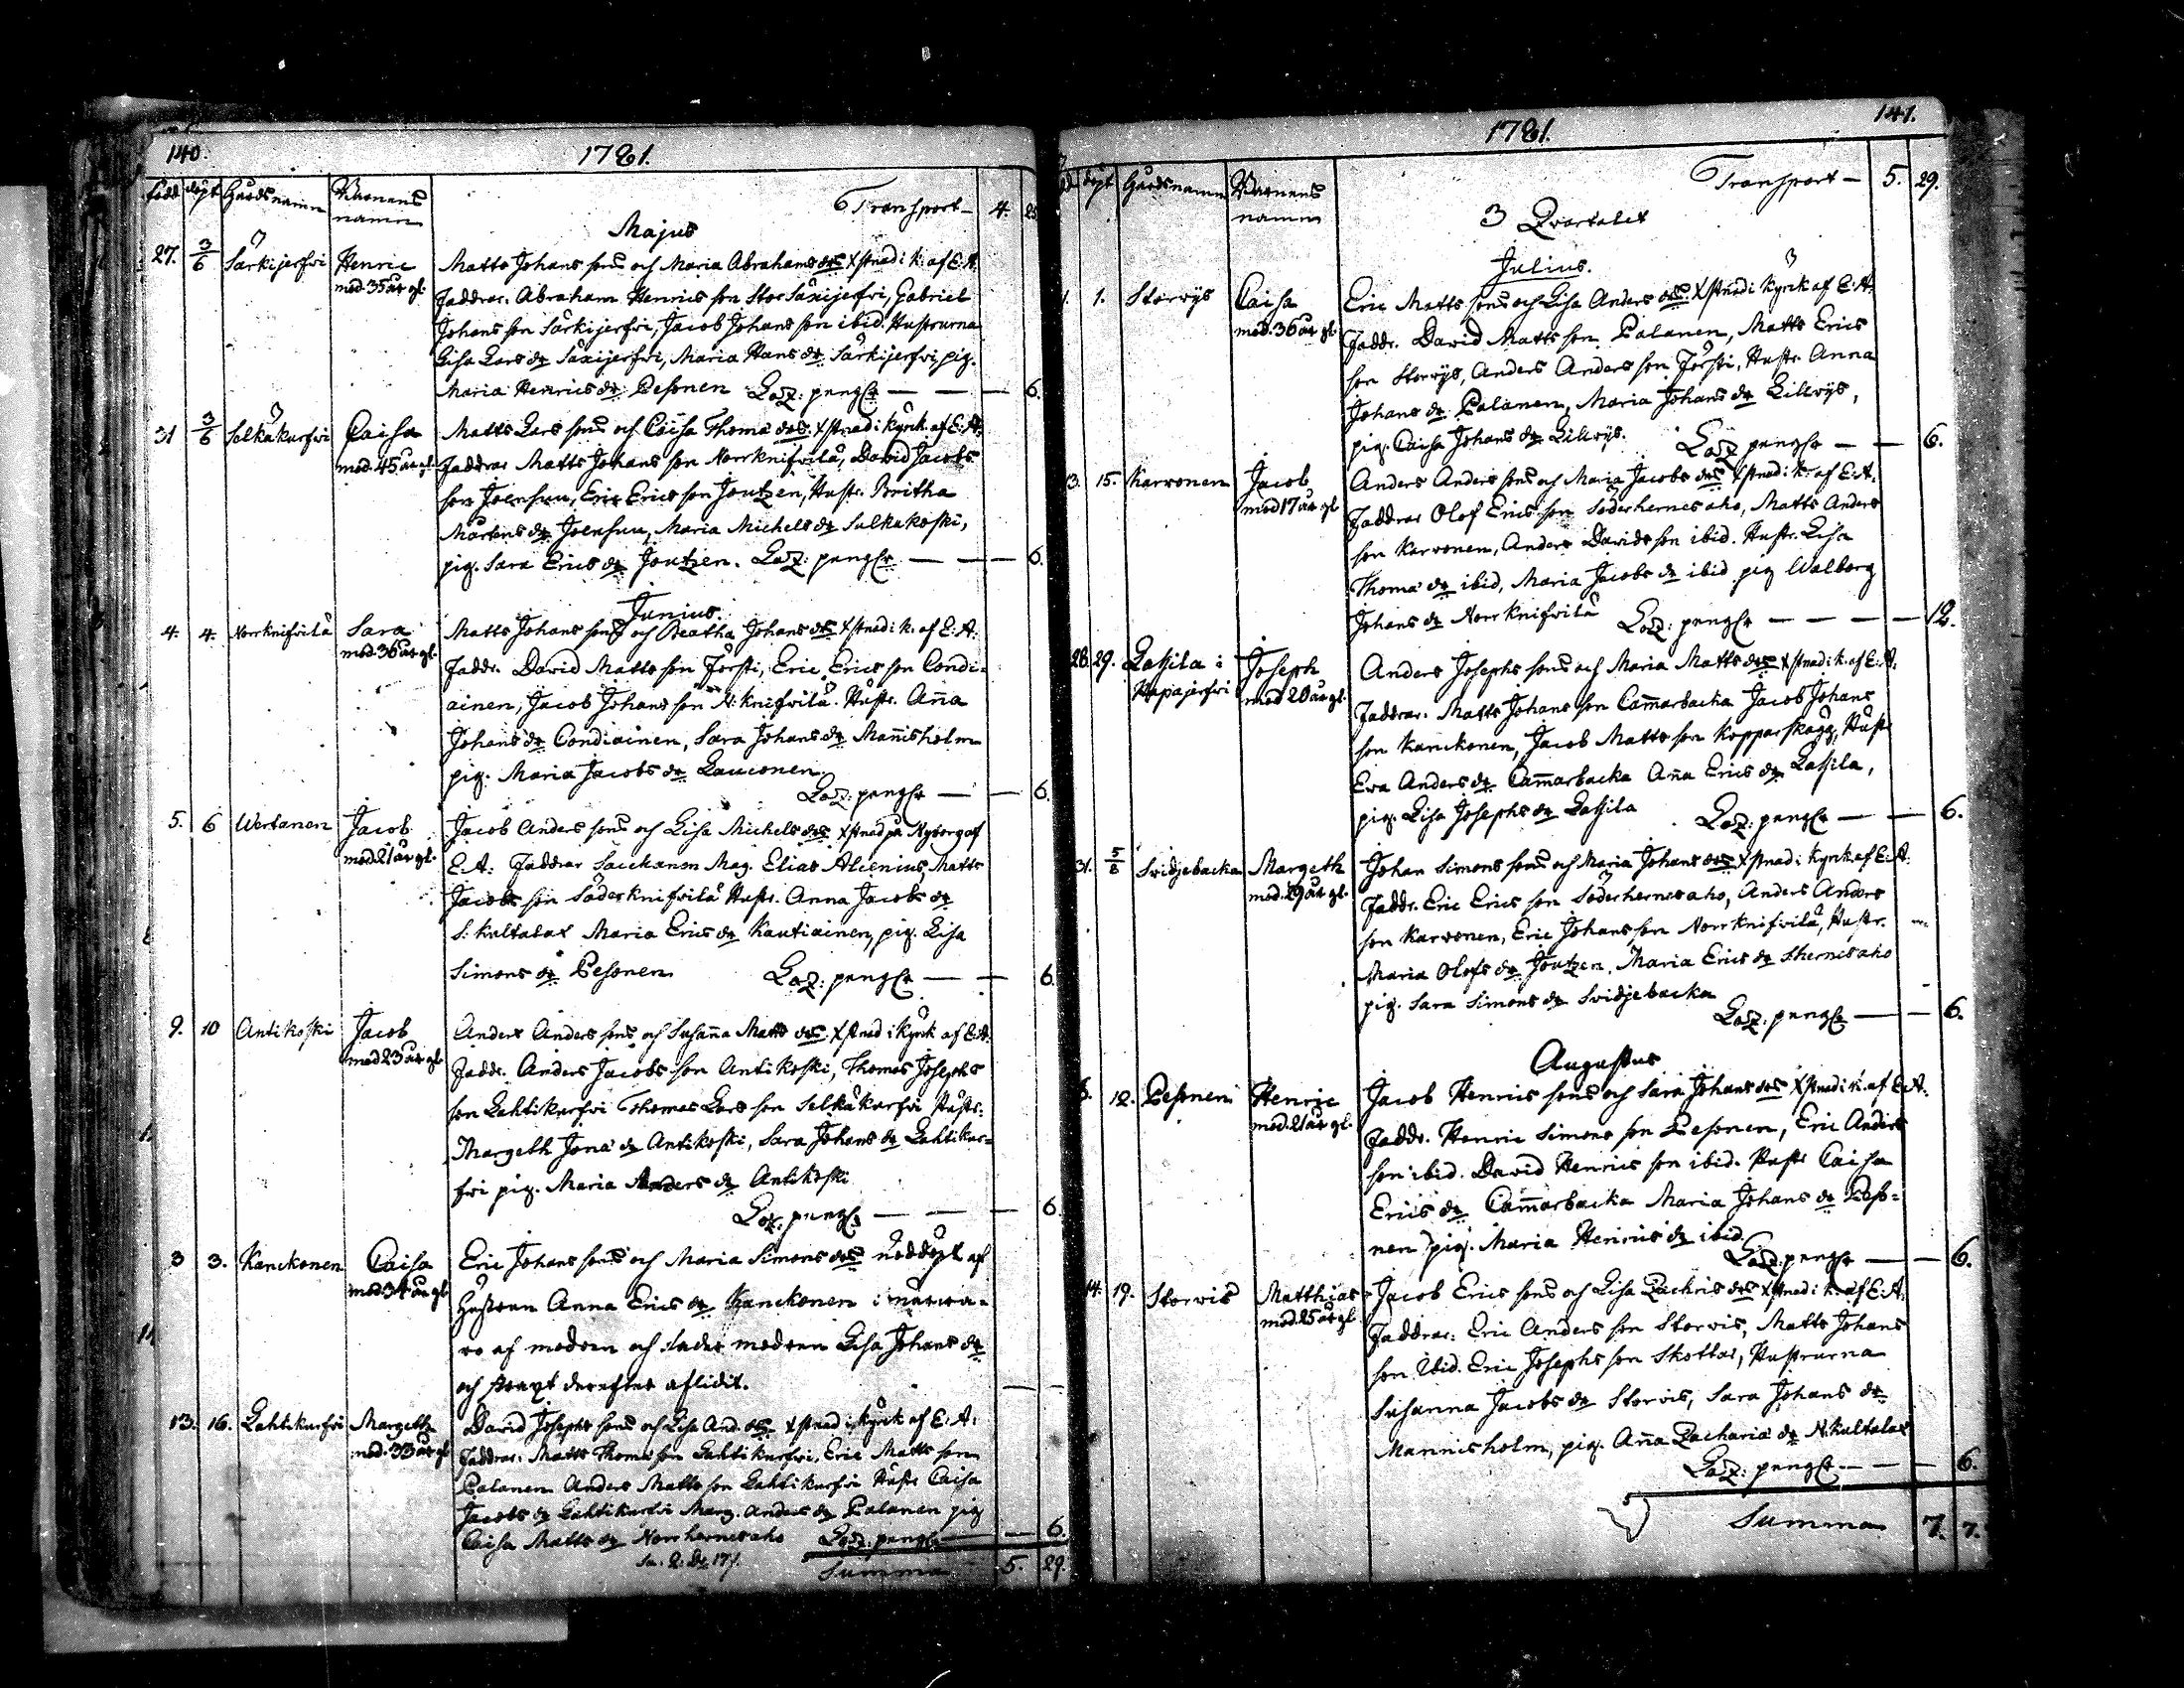 140.
1781.
född döpt Gårds namn Barnens namn
Transport — 4. 23
Majus
27. 3/6 Särkijerfvi Henric mod. 35 år gl.
Matts Johans sons och Maria Abrahams drs Xstnad i k. af E: A:
Faddrar. Abraham Henrics son Stor Säxijerfvi, Gabriel
Johans son Särkijerfvi, Jacob Johans son ibid. Hustrurna
Lisa Lars dr Säxijerfvi, Maria Hans dr Särkijerfvi, pig.
Maria Henrics dr Pesonen Laz: pengar — — — 6.
31 3/6 Selkäkurfvi Caisa mod. 45 år gl.
Matts Lars sons och Caisa Thomæ drs. Xstnad i Kyrk. af E: A:
Faddrar Matts Johans son Norrknifvilä, David Jacobs
son Joensuu, Eric Erics son Joutzen, Hustr. Britha
Mårtens dr Joensuu, Maria Michels dr Sulkakoski,
pig. Sara Erics dr Joutzen. Laz: pengar — — — 6.
Junius.
4. 4. Norrknifvilä Sara mod. 36 år gl.
Matts Johans sons och Beatha Johans drs Xstnad i k. af E: A:
Faddr. David Matts son Försti, Eric Erics son Condi-
ainen, Jacob Johans son N: knifvilä. Hustr. Anna
Johans dr Condiainen, Sara Johans dr Mannisholm
pig. Maria Jacobs dr Lauconen.
Laz: pengar — — 6.
5. 6 Wertanen Jacob mod. 21 år gl.
Jacob Anders sons och Lisa Michels drs Xstnad på Nyborg af
E. A: Faddrar Mag. Elias Alcenius, Matts
Jacobs son Söderknifvilä Hustr. Anna Jacobs dr
S: kultalax Maria Erics dr Kautiainen, pig. Lisa
Simons dr Pesonen Laz: pengar — — 6.
9. 10 Antikoski Jacob mod. 23 år gl.
Anders Anders sons och Susanna Matts drs. Xstnad i Kyrk af E: A:
Faddr. Anders Jacobs son Antikoski, Thomas Josephs
son Lahtikurfvi Thomas Lars son Selkäkurfvi Hustr:
Margeth Jonæ dr Antikoski, Sara Johans dr Lahtikur-
fvi pig. Maria Anders dr Antikoski
Laz. pengar — — — 6.
3 3. Kanckonen Caisa mod. 34 år gl
Eric Johans sons och Maria Simons drs nöddöpt af
Hustrun Anna Erics dr Kanckonen i närwa-
ro af modren och fader modren Lisa Johans dr
och straxt derefter aflidit.
13. 16. Lahtikurfvi Margeth mod. 33 år gl
David Josephs sons och Lisa And. drs. Xstnad i Kyrk af E: A:
Faddrar. Matts Thomæ son Lahtikurfvi, Eric Matts son
Palanen Anders Matts son Lahtikurfvi Hustr Caisa
Jacobs dr Lahtikurfvi Marg. Anders dr Palanen pig
Caisa Matts dr Norrhernesaho Laz: pengar — — 6.
Summa 5. 29.
141.
1781.
döpt Gårds namn Barnens namn
Transport — 5. 29.
3 Qvartalet
Julius.
1. 1. Storvijs Caisa mod. 36 år gl.
Eric Matts sons och Lisa Anders drs. Xstnad i kyrk af E: A:
Faddr. David Matts son Palanen, Matts Erics
son Storvijs, Anders Anders son Försti, Hustr. Anna
Johans dr Palanen, Maria Johans dr Lillvijs,
pig. Caisa Johans dr Lillvijs. Laz pengar — — 6.
13. 15. Karvonen Jacob mod 17 år gl
Anders Anders sons och Maria Jacobs drs Xstnad i k. af E: A:
Faddrar Olof Erics son Söderhernesaho, Matts Anders
son Karvonen, Anders Davids son ibid. Hustr. Lisa
Thomæ dr ibid, Maria Jacobs dr ibid pig Walborg
Johans dr Norrknifvilä Laz: pengar — — — — 12.
28. 29. Lassila i Haapajerfvi Joseph mod 20 år gl.
Anders Josephs sons och Maria Matts drs Xstnad i k. af E: A:
Faddrar. Matts Johans son Cammarbacka Jacob Johans
son Kanckonen, Jacob Matts son Kopparskägg, Hustr
Eva Anders dr Cammarbacka Anna Erics dr Lassila,
pig. Lisa Josephs dr Lassila Laz: pengar — — 6.
31. 5/8 Svidjebacka Margeth mod. 29 år gl.
Johan Simons sons och Maria Johans drs Xstnad i kyrk af E: A:
Faddr. Eric Erics son Söderhernesaho, Anders Anders
son Karvonen, Eric Johans son Norrknifvilä, Hustr.
Maria Olofs dr Joutzen, Maria Erics dr Shernesaho
pig. Sara Simons dr Svidjebacka
Laz: pengar — — 6.
Augustus
12. Pesonen Henric mod. 21 år gl.
Jacob Henrics sons och Sara Johans drs Xstnad i k. af E: A:
Faddr. Henric Simons son Pesonen, Eric Anders
son ibid. David Henrics son ibid. Hustr Caisa
Erics dr Cammarbacka Maria Johans dr Peso-
nen pig. Maria Henrics dr ibid.
Laz: pengar — — 6.
14. 19. Storvis Matthias mod. 25 år gl.
Jacob Erics sons och Lisa Zachris drs Xstnad i k. af E: A:
Faddrar: Eric Anders son Storvis, Matts Johans
son ibid. Eric Josephs son Skottar, Hustrurna
Susanna Jacobs dr Storvis, Sara Johans dr
Mannisholm, pig. Anna Zachariæ dr N: kultalax
Laz: pengar — — — 6.
Summa 7. 7.